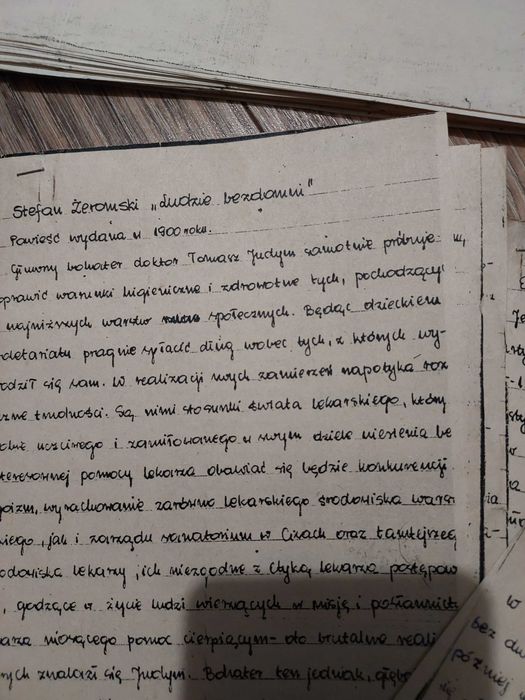 Stefan Żeromski "Ludzie bezdomni"
Powieść wydana w 1900 roku.
Główny bohater doktor Tomasz Judym samotnie próbuje
oprawić warunki higieniczne i zdrowotne tych, pochodzący
najniższych warstw społecznych. Będąc dzieckiem
oletariatu pragnie spłacić dług wobec tych, z których wy-
odził się sam. W realizacji swych zamierzeń napotyka roz
czne trudności. Są nimi stosunki świata lekarskiego, który
uczciwego i zamiłowanego w swym dziele niesienia be
teresownej pomocy lekarza obawiać się będzie konkurencji.
goizm, wyrachowanie zarówno lekarskiego środowiska warsz
kiego, jak i zarządu sanatorium w Cisach oraz tamtejszeg
odowiska lekarzy, ich niezgodne z etyką lekarza postępow
, godzące w życie ludzi wierzących w misję i posłannict
arza niosącego pomoc cierpiącym - oto brutalne reali
rych znalazł się Judym. Bohater ten jednak, głębo
w
bez du
później